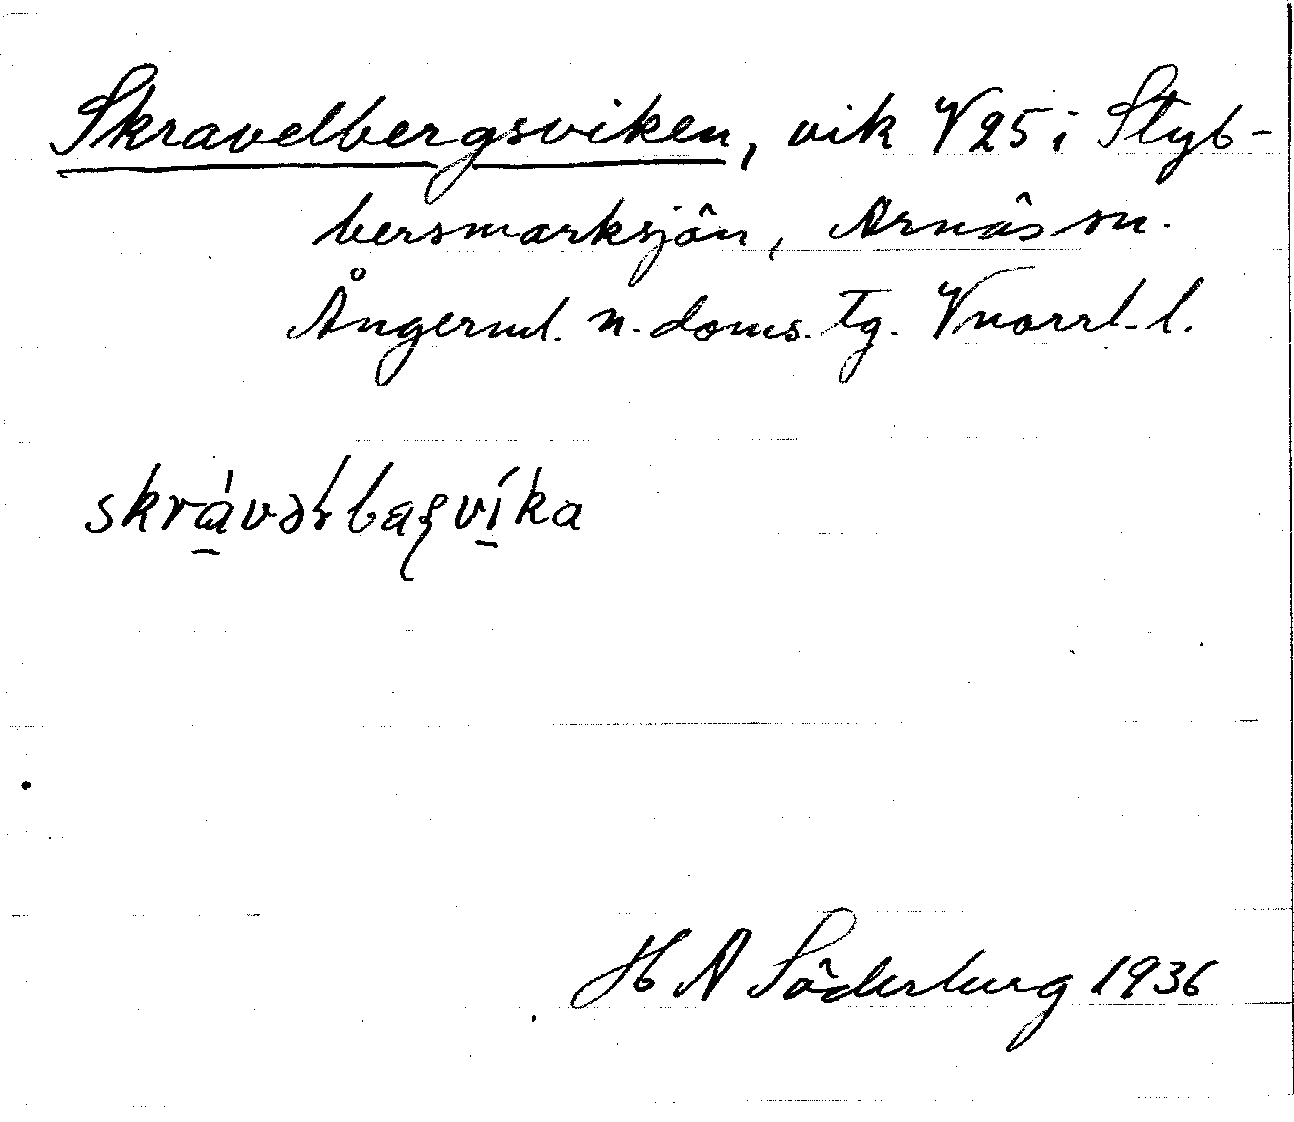 Skravelbergsviken, vik V25 i Styb-
bersmarksjön, Arnäs sn.
Ångerml. n. doms. tg. Vnorrl. l.
H A Söderberg 1936